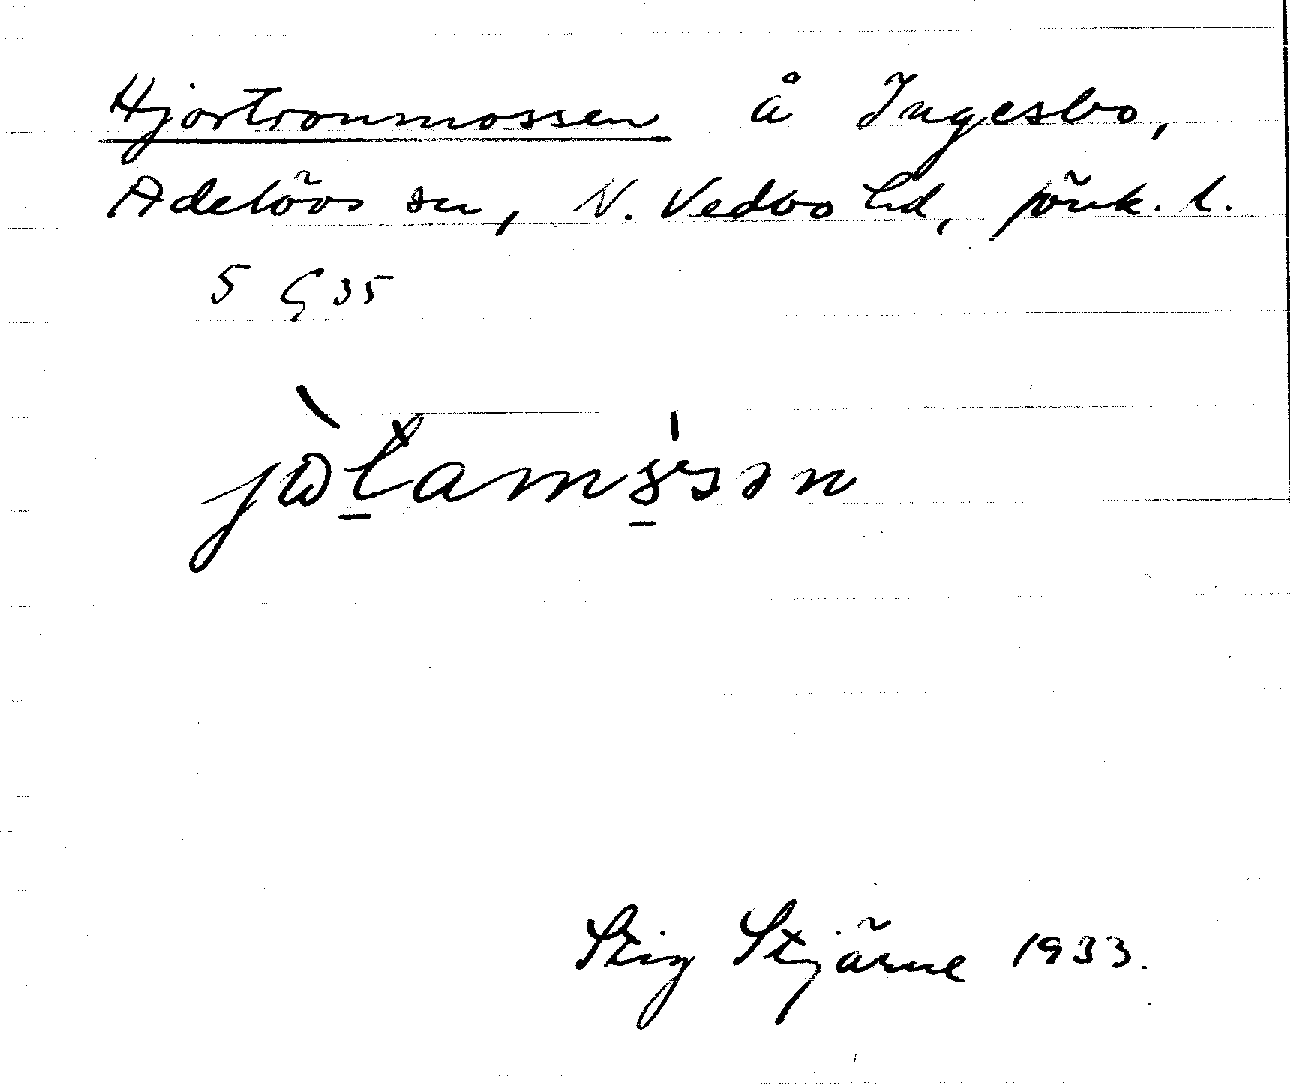 Hjortronmossen å Ingesbo,
Adelövs sn, N. Vedbo hd, Jönk. l.
5 G 35
Stig Stjärne 1933.